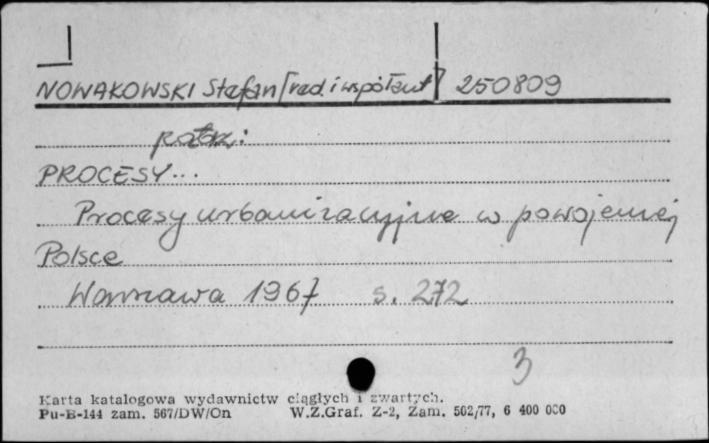 NOWAKOWSKI Stefan [red i współaut] 250809
patrz:
PROCESY...
Procesy urbanizacyjne w powojennej
Polsce
Warszawa 1967 s. 272
3
Karta katalogowa wydawnictw ciągłych i zwartych.
Pu-B-144 zam. 567/DW/On W.Z.Graf. Z-2, Zam. 502/77, 6 400 000